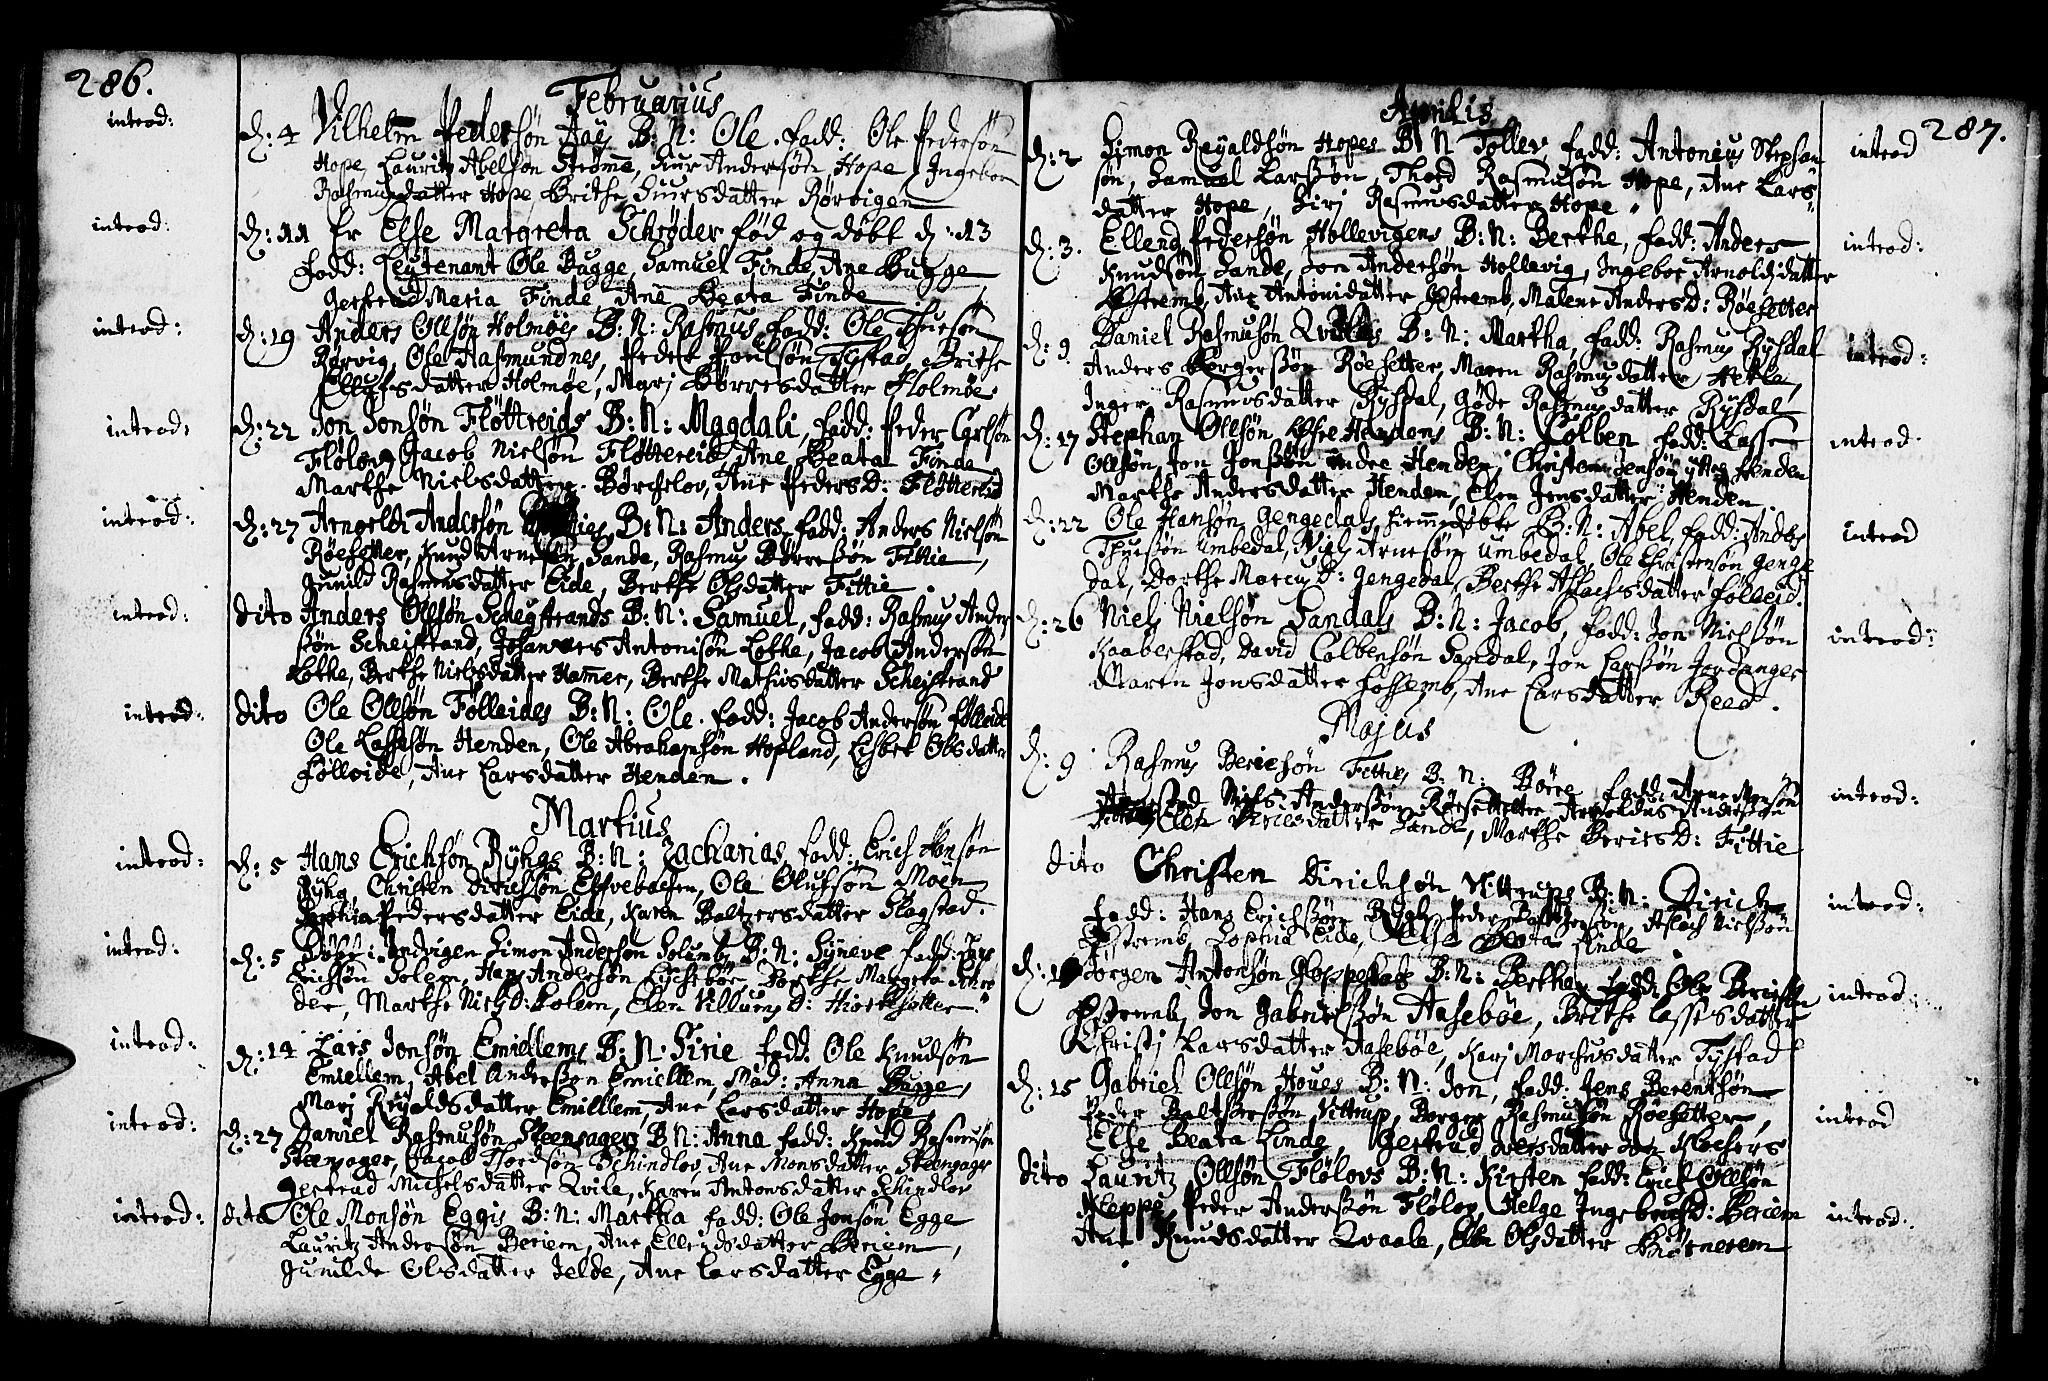 286.
Februarius
introd: d: 4 Vilhelm Pedersøn Aaes B: N: Ole. fadd: Ole Pedersøn
Hope, Lauritz Abelsøn Strømme, Siur Andersøn Hope, Ingebor
Rasmusdatter Hope, Brithe Siursdatter Rørvigen
introd: d: 11 Er Else Margreta Schrøder fød og døbt d: 13
fadd: Leutenant Ole Bugge, Samuel Finde, Ane Bugge
Gertrud Maria Finde, Ane Beata Finde
introd: d: 19 Anders Ollsøn Holmøes B: N: Rasmus, fadd: Ole Thuesøn
Rørvig, Ole Aasmundnes, Peder Poulsøn Tystad, Brithe
Ellufsdatter Holmøe, Marj Børresdatter Holmøe
introd: d: 22 Jon Jonsøn Fløttreids B: N: Magdali, fadd: Peder Carlsøn
Fløløv, Jacob Nielsøn Fløttereid, Ane Beata Finde
Marthe Nielsdatter Børchelov, Ane Peders D: Fløttereid
introd: d: 27 Arnoldt Andersøn B: N: Anders, fadd: Anders Nielsøn
Røesetter, Knud Arnesøn Sande, Rasmus Børresøn Fittie,
Gunild Rasmusdatter Eide, Berthe Olsdatter Fittie.
introd: dito Anders Ollsøn Schejstrands B: N: Samuel, fadd: Rasmus Ander
søn Scheistrand, Johannes Antonisøn Lothe, Jacob Andersøn
Lothe, Berthe Nielsdatter Hammer, Berthe Mathiisdatter Scheistrand
introd: dito Ole Ollsøn Følleides B: N: Ole. fadd: Jacob Andersøn Følleide
Ole Lassesøn Henden, Ole Abrahamsøn Hopland, Lisbet Olsdatter
Følleide, Ane Larsdatter Henden.
Martius
introd: d: 5 Hans Erichsøn Rÿghs B: N: Zacharias, fadd: Erich Hansøn
Rÿhg, Christen Dirichsøn Elfvebachen, Ole Olufsøn Moen
Sophia Pedersdatter Eide, Karen Baltzersdatter Slagstad.
introd: d: 5 Døbt i Indvigen Simon Andersøn Solemb, B: N: Sÿneve fadd: Lars
Erichsøn Solem, Hans Andersøn Eichebøe, Dorthe Margreta Schrø
der, Marthe Niels D: Solem, Elen Villums D: Hiortesetter
introd: d: 14 Lars Jonsøn Emiellems B: N: Sirie fadd: Ole Knudsøn
Emiellem, Abel Andersøn Emiellem, Mad: Anna Bugge,
Marj Reÿaldsdatter Emillem, Ane Larsdatter Hope.
introd: d: 27 Daniel Rasmusøn Steensagers B: N: Anna fadd: Knud Rasmusøn
Steensager, Jacob Thordsøn Schindlov, Ane Monsdatter Steensager
Gertrud Michelsdatter Qvile, Karen Antonsdatter Schindlov
introd: dito Ole Monsøn Eggis B: N: Martha fadd: Ole Jonsøn Egge
Lauritz Andersøn Beriem, Ane Ellendsdatter Beriem,
Gunilde Olsdatter Jelde, Ane Larsdatter Egge
287.
Aprilis
d: 2 Simon Reÿaldsøn Hopes B: N Tollev, fadd: Antonius Stephan introd
søn, Samuel Larssøn, Thord Rasmusøn Hope, Ane Lars
datter Hope, Sirj Rasmusdatter Hope
d: 3. Ellend Pedersøn Hollevigens B: N: Berthe, fadd: Anders introd:
Knudsøn Sande, Jon Andersøn Hollevig, Ingebor Arnoldsdatter
Østremb, Ane Antonidatter Østremb, Malene Anders D: Røesetter
d: 9 Daniel Rasmusøn Qviles B: N: Martha, fadd: Rasmus Rysdal introd:
Anders Børgersøn Røesetter, Maren Rasmusdatter Hetle,
Inger Rasmusdatter Rysdal, Gøde Rasmusdatter Rysdal
d: 17 Stephan Ollsøn Østre Hendens B: N: Colben fadd: Lasse introd
Ollsøn, Jon Jonssøn indre Henden, Christen Jensøn ÿttre Henden
Marthe Andersdatter Henden, Elen Jensdatter Henden.
d: 22 Ole Hansøn Gengedals hiemmedøbte B: N: Abel, fadd: Anders introd
Thuesøn Umbedal, Niels Arnesøn Umbedal, Ole Christensøn Genge
dal, Dorthe Marcus D: Gengedal, Berthe Aslachsdatter Følleid.
d: 26 Niels Nielsøn Sandals B: N: Jacob, fadd: Jon Nielssøn introd:
Kaaberstad, David Colbensøn Sandal, Jon Larssøn Jordanger
Maren Jonsdatter Fossemb, Ane Larsdatter Reed.
Majus
d: 9 Rasmus Beriesøn Fitties B: N: Børre fadd: Anne Monsøn introd:
Niels Andersøn Røesetter, Arnoldus Andersøn
Elen Diriesdatter Sande, Marthe Beries D: Fittie
dito Christen Dirichsøn Vittrups B: N: Dirich introd:
fadd: Hans Erichssøn Rÿgh, Peder Baltzersøn, Aslach Nielssøn
Østremb, Sophia Eide, Else Beata Finde
d: Jørgen Antonsøn Gloppestads B: N: Berthe, fadd: Ole Beriesøn introd
Østremb, Jon Gabrielssøn Aasebøe, Brithe Lassesdatter
Christj Larsdatter Aasebøe, Karj Marchusdatter Tystad
d: 15 Gabriel Ollsøn Houes B: N: Jon, fadd: Jens Berentsøn
Peder Baltzersøn Vittrup, Børger Rasmusøn Røesetter, introd
Else Beata Finde, Gertrud Iversdatter
dito Lauritz Ollsøn Fløløvs B: N: Kirsten fadd: Erich Ollsøn
Heppe, Peder Anderssøn Fløløv, Helge Ingebrits D: Beriem introd:
Ane Knudsdatter Qvaale, Elen Olsdatter Biørnerem